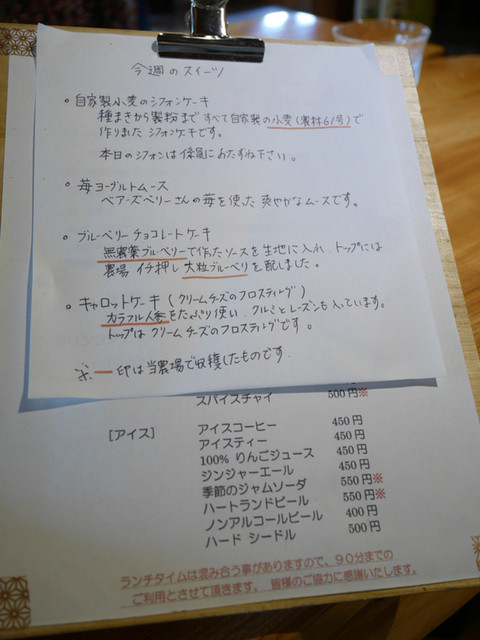 今週のスイーツ
○自家製小麦のシフォンケーキ
種まきから製粉まですべて自家製の小麦(農林61号)で
作りました シフォンケーキです。
本日のシフォンは係員におたずね下さい。
○苺ヨーグルトムース
ベアーズベリーさんの苺を使った爽やかなムースです。
○ブルーベリーチョコレートケーキ
無農薬ブルーベリーで作ったソースを生地に入れ、トップには
農場イチ押し大粒ブルーベリを配しました。
○キャロットケーキ(クリームチーズのフロスティング)
カラフル人参をたっぷり使い、クルミとレーズンも入っています。
トップはクリームチーズのフロスティングです。
※ー印は当農場で収穫したものです.
スパイスチャイ 500円※
[アイス] アイスコーヒー 450円
アイスティー 450円
100% りんごジュース 450円
ジンジャーエール 450円
季節のジャムソーダ 550円※
ハートランドビール 550円※
ノンアルコールビール 400円
ハード シードル 500円
ランチタイムは混み合う事がありますので、90分までの
ご利用とさせて頂きます。 皆様のご協力に感謝いたします。